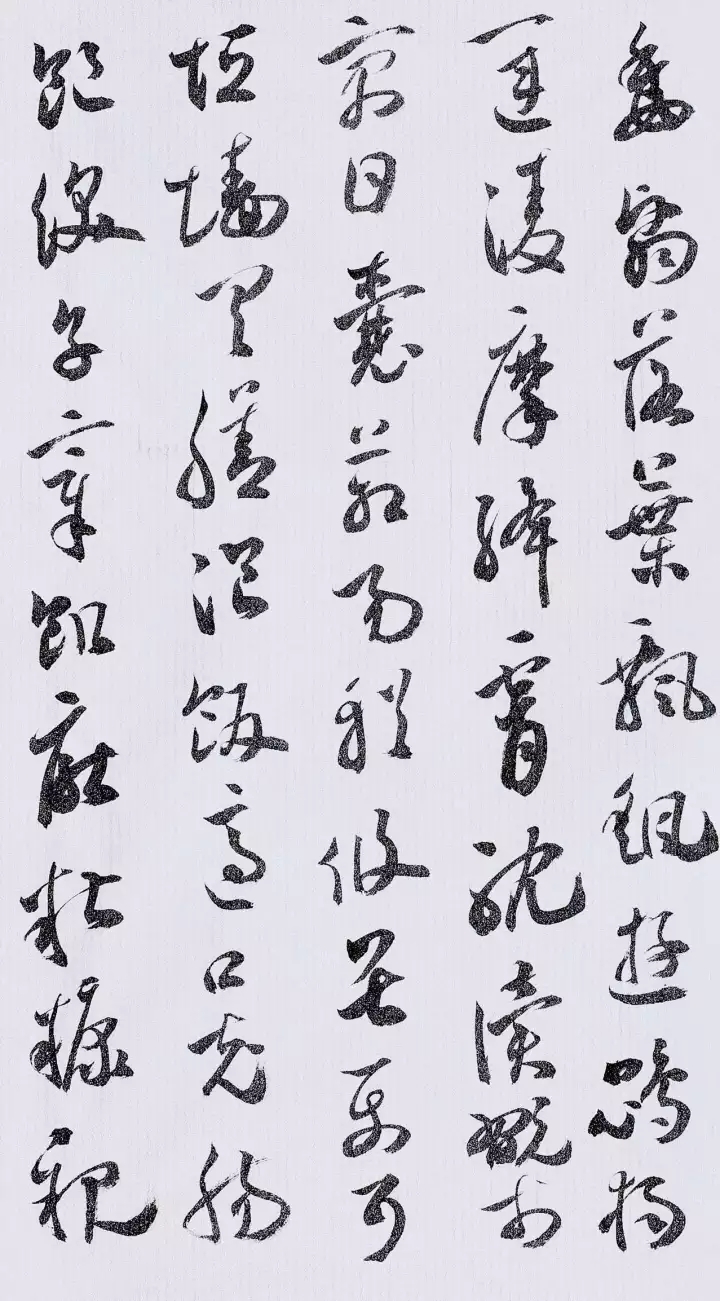 委翳落葉飄颻遊鵾獨
運凌摩絳霄耽讀翫市
寓目囊箱易輶攸畏屬耳
垣墻具膳飡飯適口充腸
飽飫享宰飢厭糟糠親